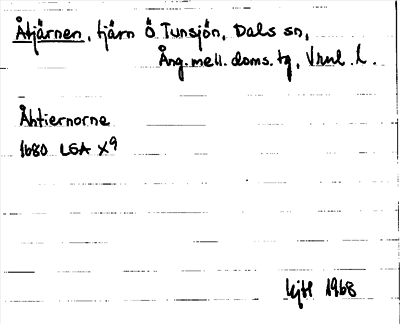 Åtjärnen, tjärn Ö Tunsjön, Dals sn,
Ång. mell. doms. tg, Vrnl. L.
Åhtiernorne
1680 LSA X9
1968